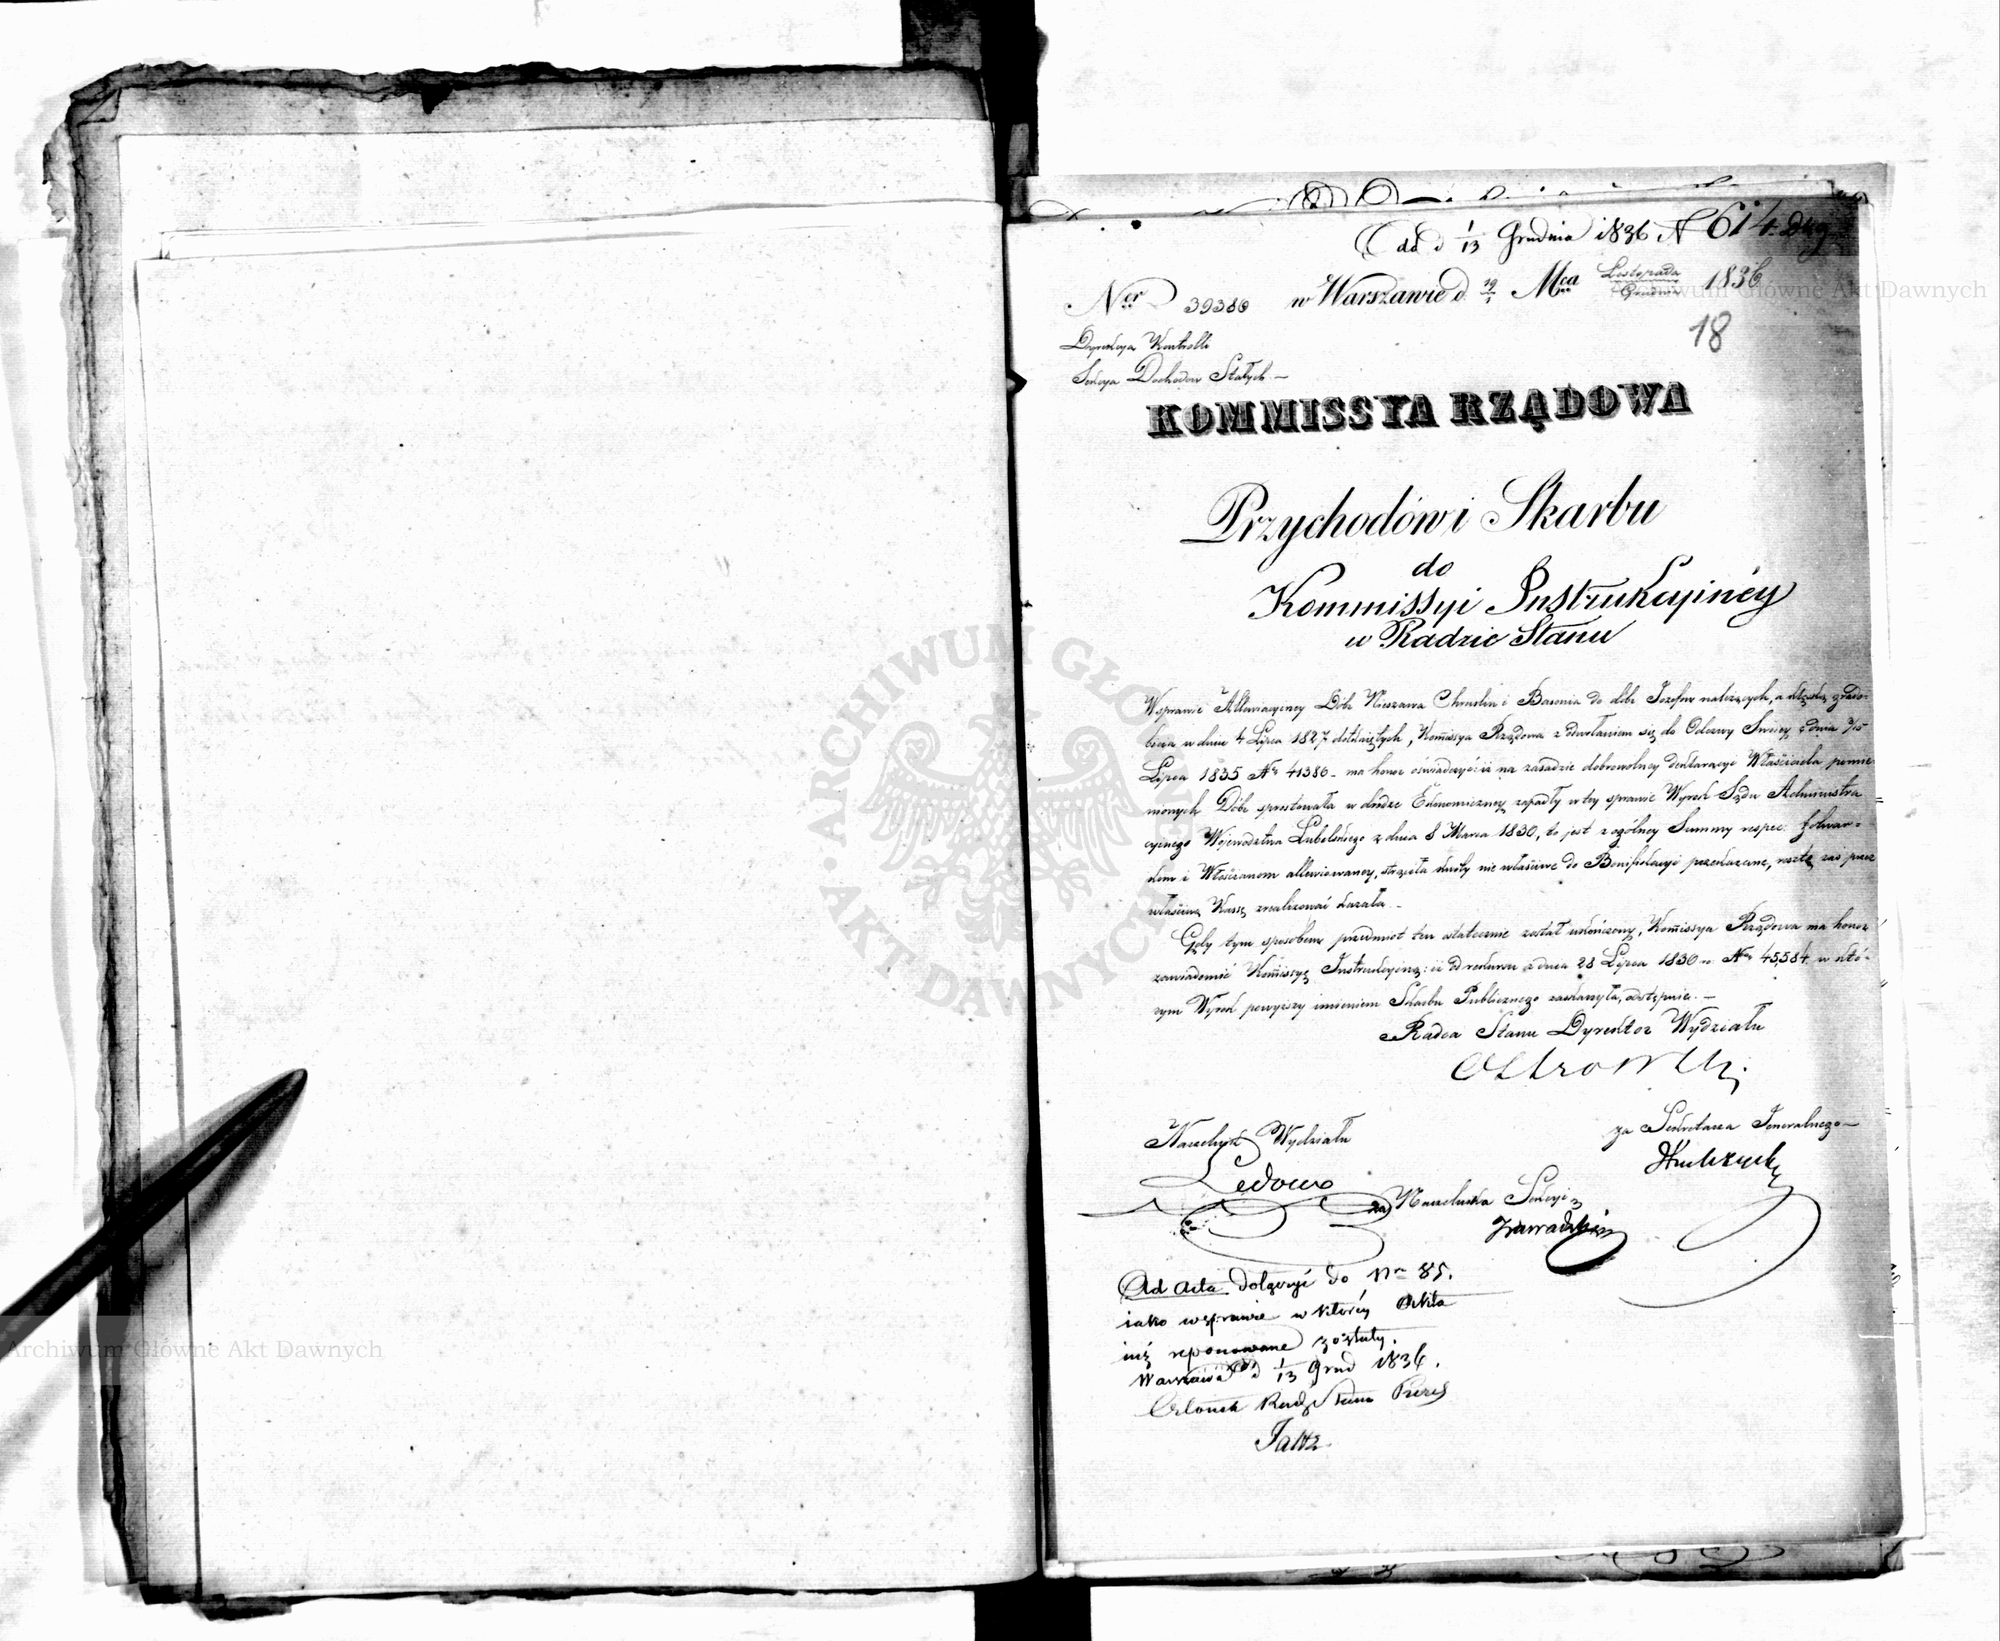 dd d 1/13 Grudnia 1836 N 614.
Ner 39380 w Warszawie d. 19/1 Mca Listopada/Grudnia 1836
18
Dyrekcya Kontrolli
Sekcya Dochodów Stałych –
KOMMISSYA RZĄDOWA
Przychodów i Skarbu
do
Kommissyi Instrukcyinéy
w Radzie Stanu
W sprawie Allewiacyiney Dóbr Nieszawa Chruślin i Basonia do dóbr Józefow należących, a klęską gradobicia
w dniu 4 Lipca 1827 dotkniętych, Kommissya Rządowa z odwołaniem się do Odezwy Swoiey z dnia 3/15
Lipca 1835 Nr 41386 – ma honor oświadczyć: iż na zasadzie dobrowolney deklaracyi Właściciela pomie-
nionych Dóbr sprostowała w drodze Ekonomiczney zapadły w tey sprawie Wyrok Sądu Administra
cyinego Województwa Lubelskiego z dnia 8 Marca 1830, to jest z ogólney Summy respec: folwar-
kom i Włościanom allewiowaney, strąciła kwoty nie właściwe do Bonifikacyi przekazane, resztę zaś przez
właściwą Kassę zrealizować kazała. –
Gdy tym sposobem przedmiot ten ostatecznie został ukończony, Kommissya Rządowa ma honor
zawiadomić Kommissyą Instrukcyiną: iż od rekursu z dnia 28 Lipca 1830 r. Nr 45,584 w któ-
rym Wyrok powyższy imieniem Skarbu Publicznego zaskarżyła, odstępuie. –
Radca Stanu Dyrektor Wydziału
Ostrowski
Naczelnik Wydziału
za Sekretarza Jeneralnego –
Ledoux
za Naczelnika Sekcyi
Zawadzki
Ad Acta dołączyć do Nr 85.
iako w sprawie w któréy Akta
iuż reponowane zostały.
Warszawa d 1/13 Grud 1836.
Członek Rady Stanu Prezes